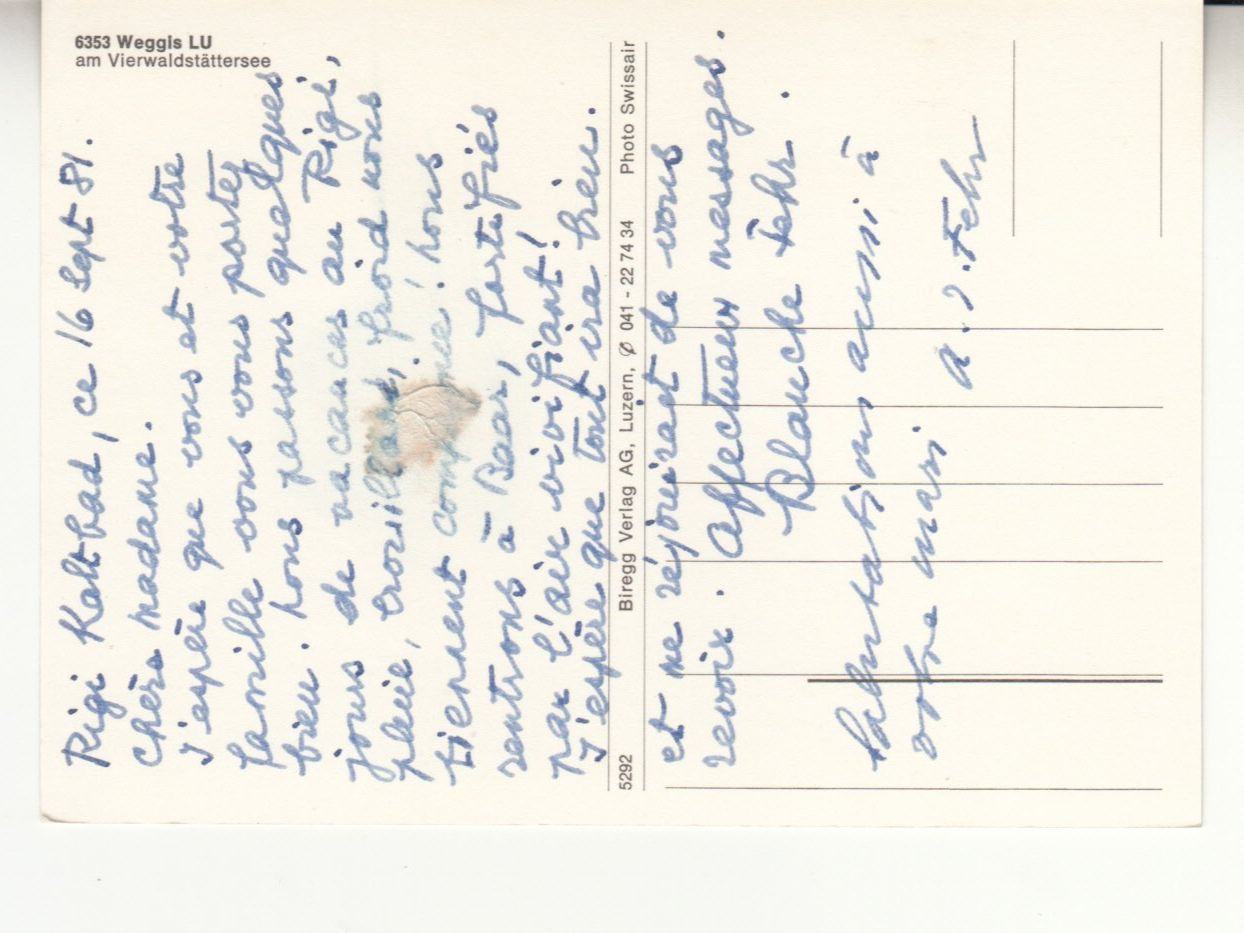 6353 Weggis LU
am Vierwaldstättersee
Rigi Kaltbad, ce 16 Sept 81.
Chère Madame.
J'espère que vous et votre
famille vous vous portez
bien. Nous passons quelques
jours de vacances au Rigi,
pluie, brouillard, froid nous
tiennent compagnie! Nous
rentrons à Baar, fortifiés
par l'air vivifiant!
J'espère que tout ira bien.
et me réjouirait de vous
revoir. Affectueux messages.
Blanche Fehr.
Salutations aussi à
votre mari
Fehr
5292 Biregg Verlag AG, Luzern, ✆ 041 - 22 74 34 Photo Swissair